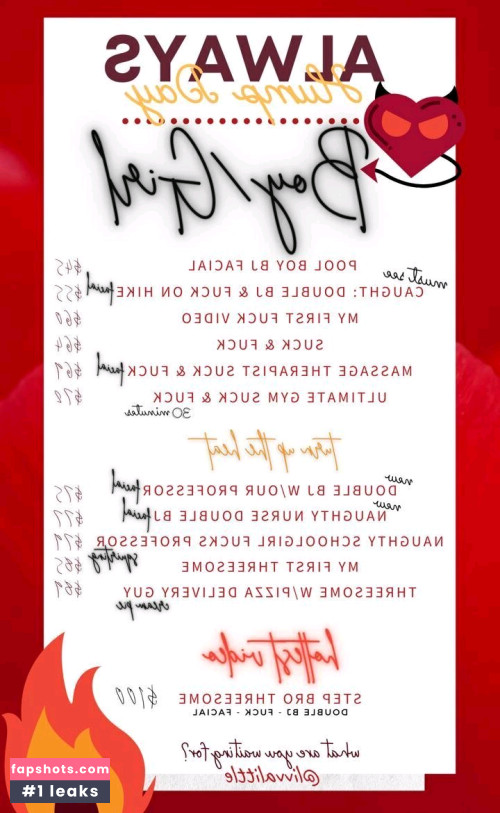 ALWAYS
Hump Day
Boy/Girl
POOL BOY BJ FACIAL $45
must see
CAUGHT: DOUBLE BJ & FUCK ON HIKE facial $55
MY FIRST FUCK VIDEO $60
SUCK & FUCK $64
MASSAGE THERAPIST SUCK & FUCK facial $69
ULTIMATE GYM SUCK & FUCK $70
30 minutes
turn up the heat
new
DOUBLE BJ W/OUR PROFESSOR facial $75
new
NAUGHTY NURSE DOUBLE BJ facial $77
NAUGHTY SCHOOLGIRL FUCKS PROFESSOR $79
squirting
MY FIRST THREESOME $85
THREESOME W/PIZZA DELIVERY GUY $89
cream pie
hottest video
STEP BRO THREESOME $100
DOUBLE BJ - FUCK - FACIAL
what are you waiting for?
@livvalittle
fapshots.com
#1 leaks